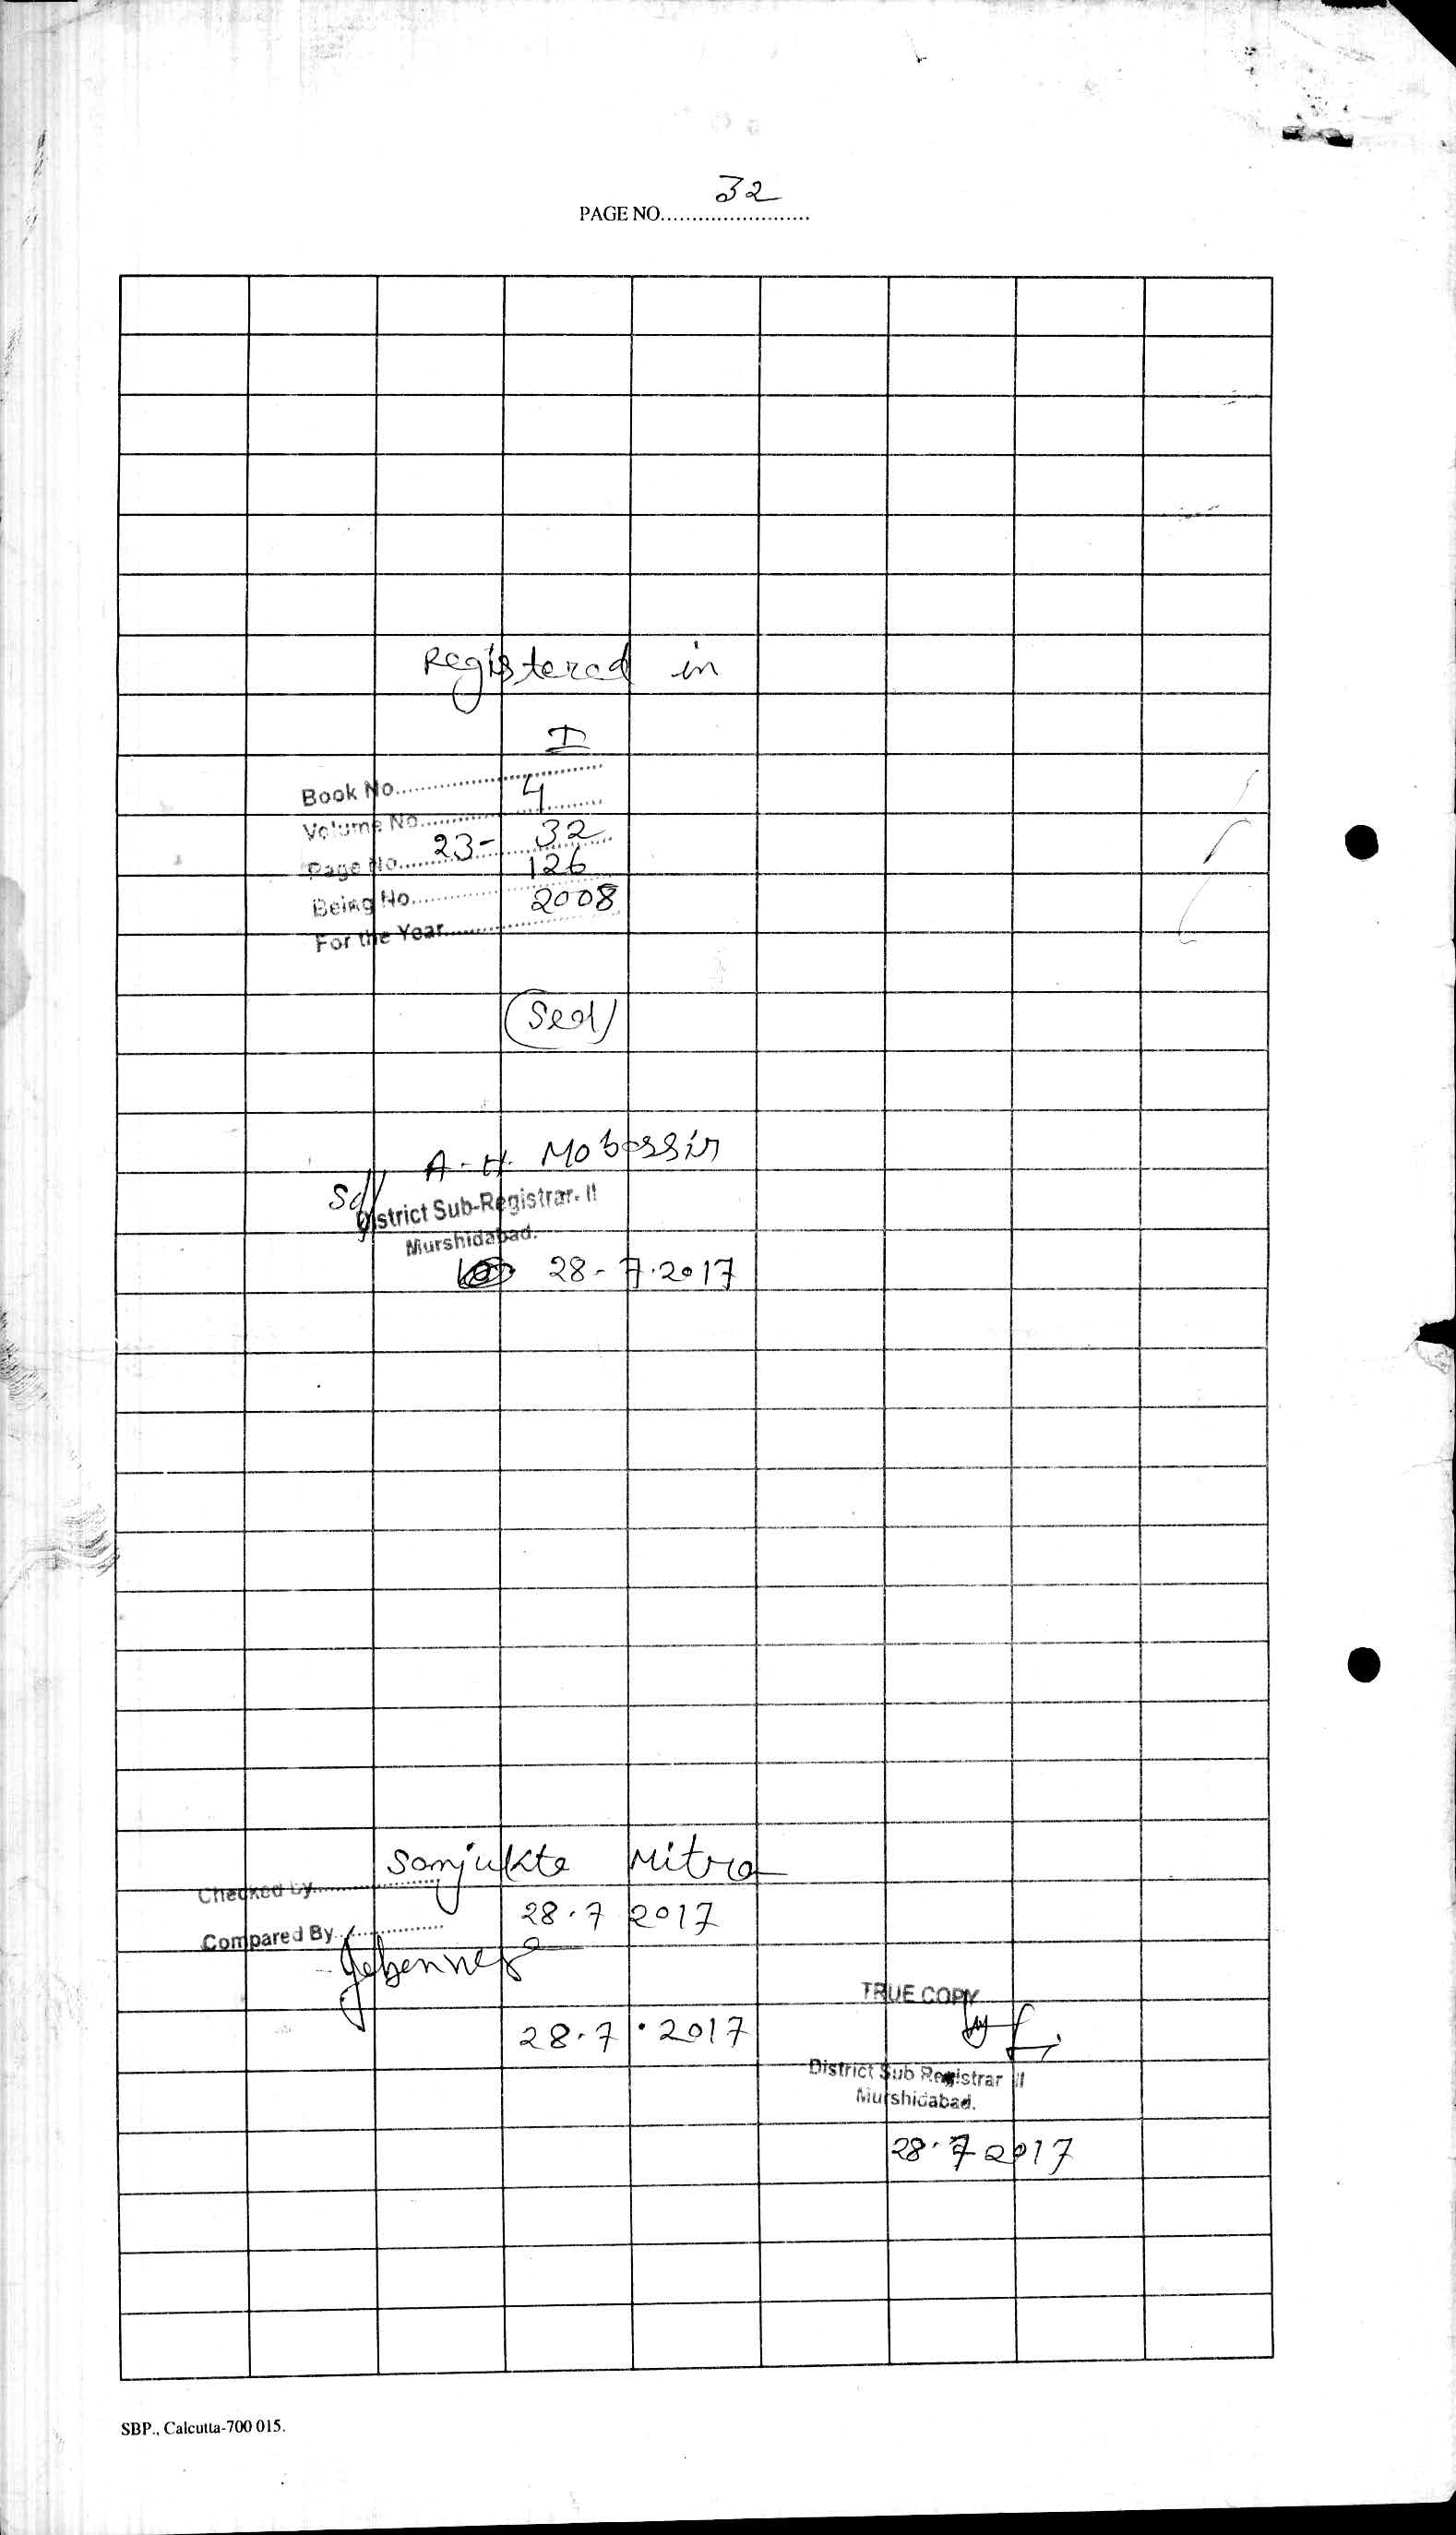 32
PAGE NO.........................
Registered in
I
Book No.
4
Volume No.
23- 32
Page No.
126
Being No.
2008
For the Year.
(Seal)
A. H. Mobassir
Sd/
District Sub-Registrar. II
Murshidabad.
28-7.2017
Sanjukta Mitra
Checked by
28.7 2017
Compared By
28.7.2017
TRUE COPY
District Sub Registrar II
Murshidabad.
28.7 2017
SBP., Calcutta-700 015.